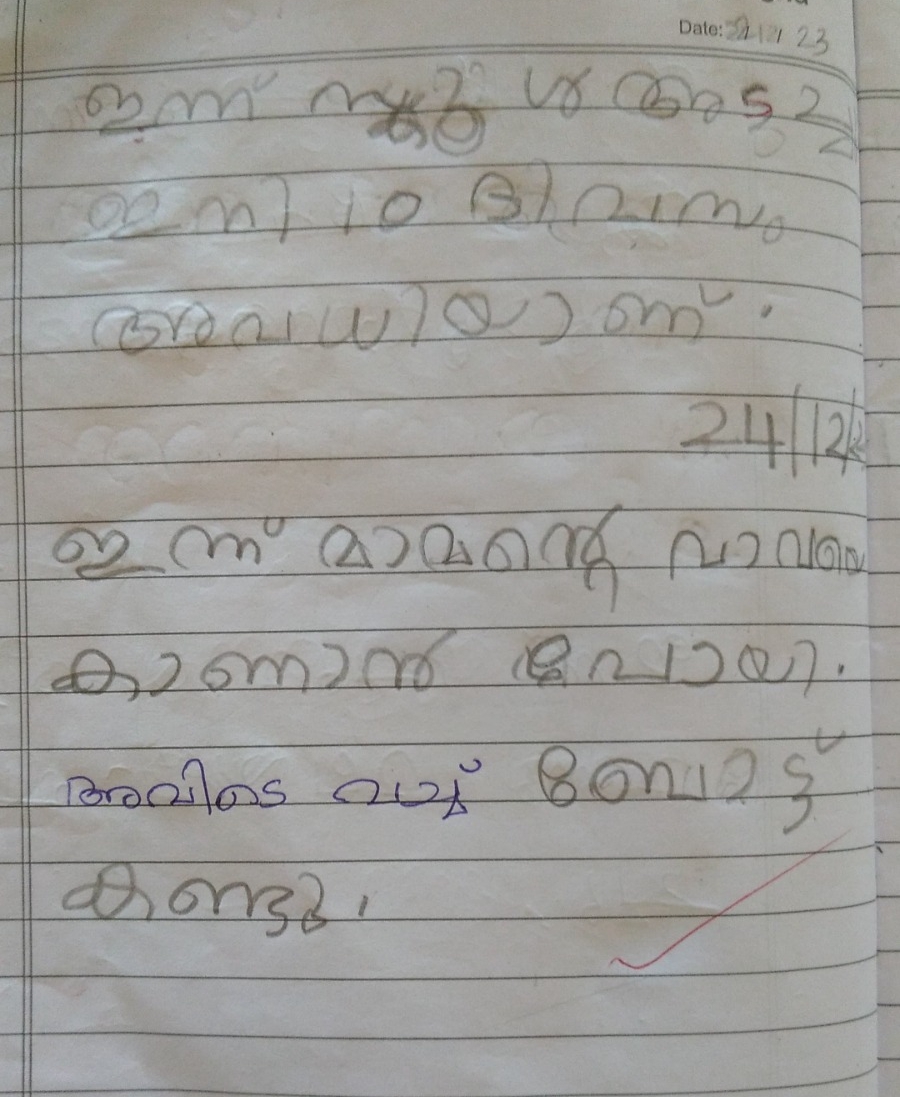 Date: 23
ഇന്ന് സ്കൂൾ അടച്ചു
ഇനി 10 ദിവസം
അവധിയാണ്.
24/12/
ഇന്ന് മാമന്റെ വാവയെ
കാണാൻ പോയി.
അവിടെ വച്ച് ബോട്ട്
കണ്ടു.